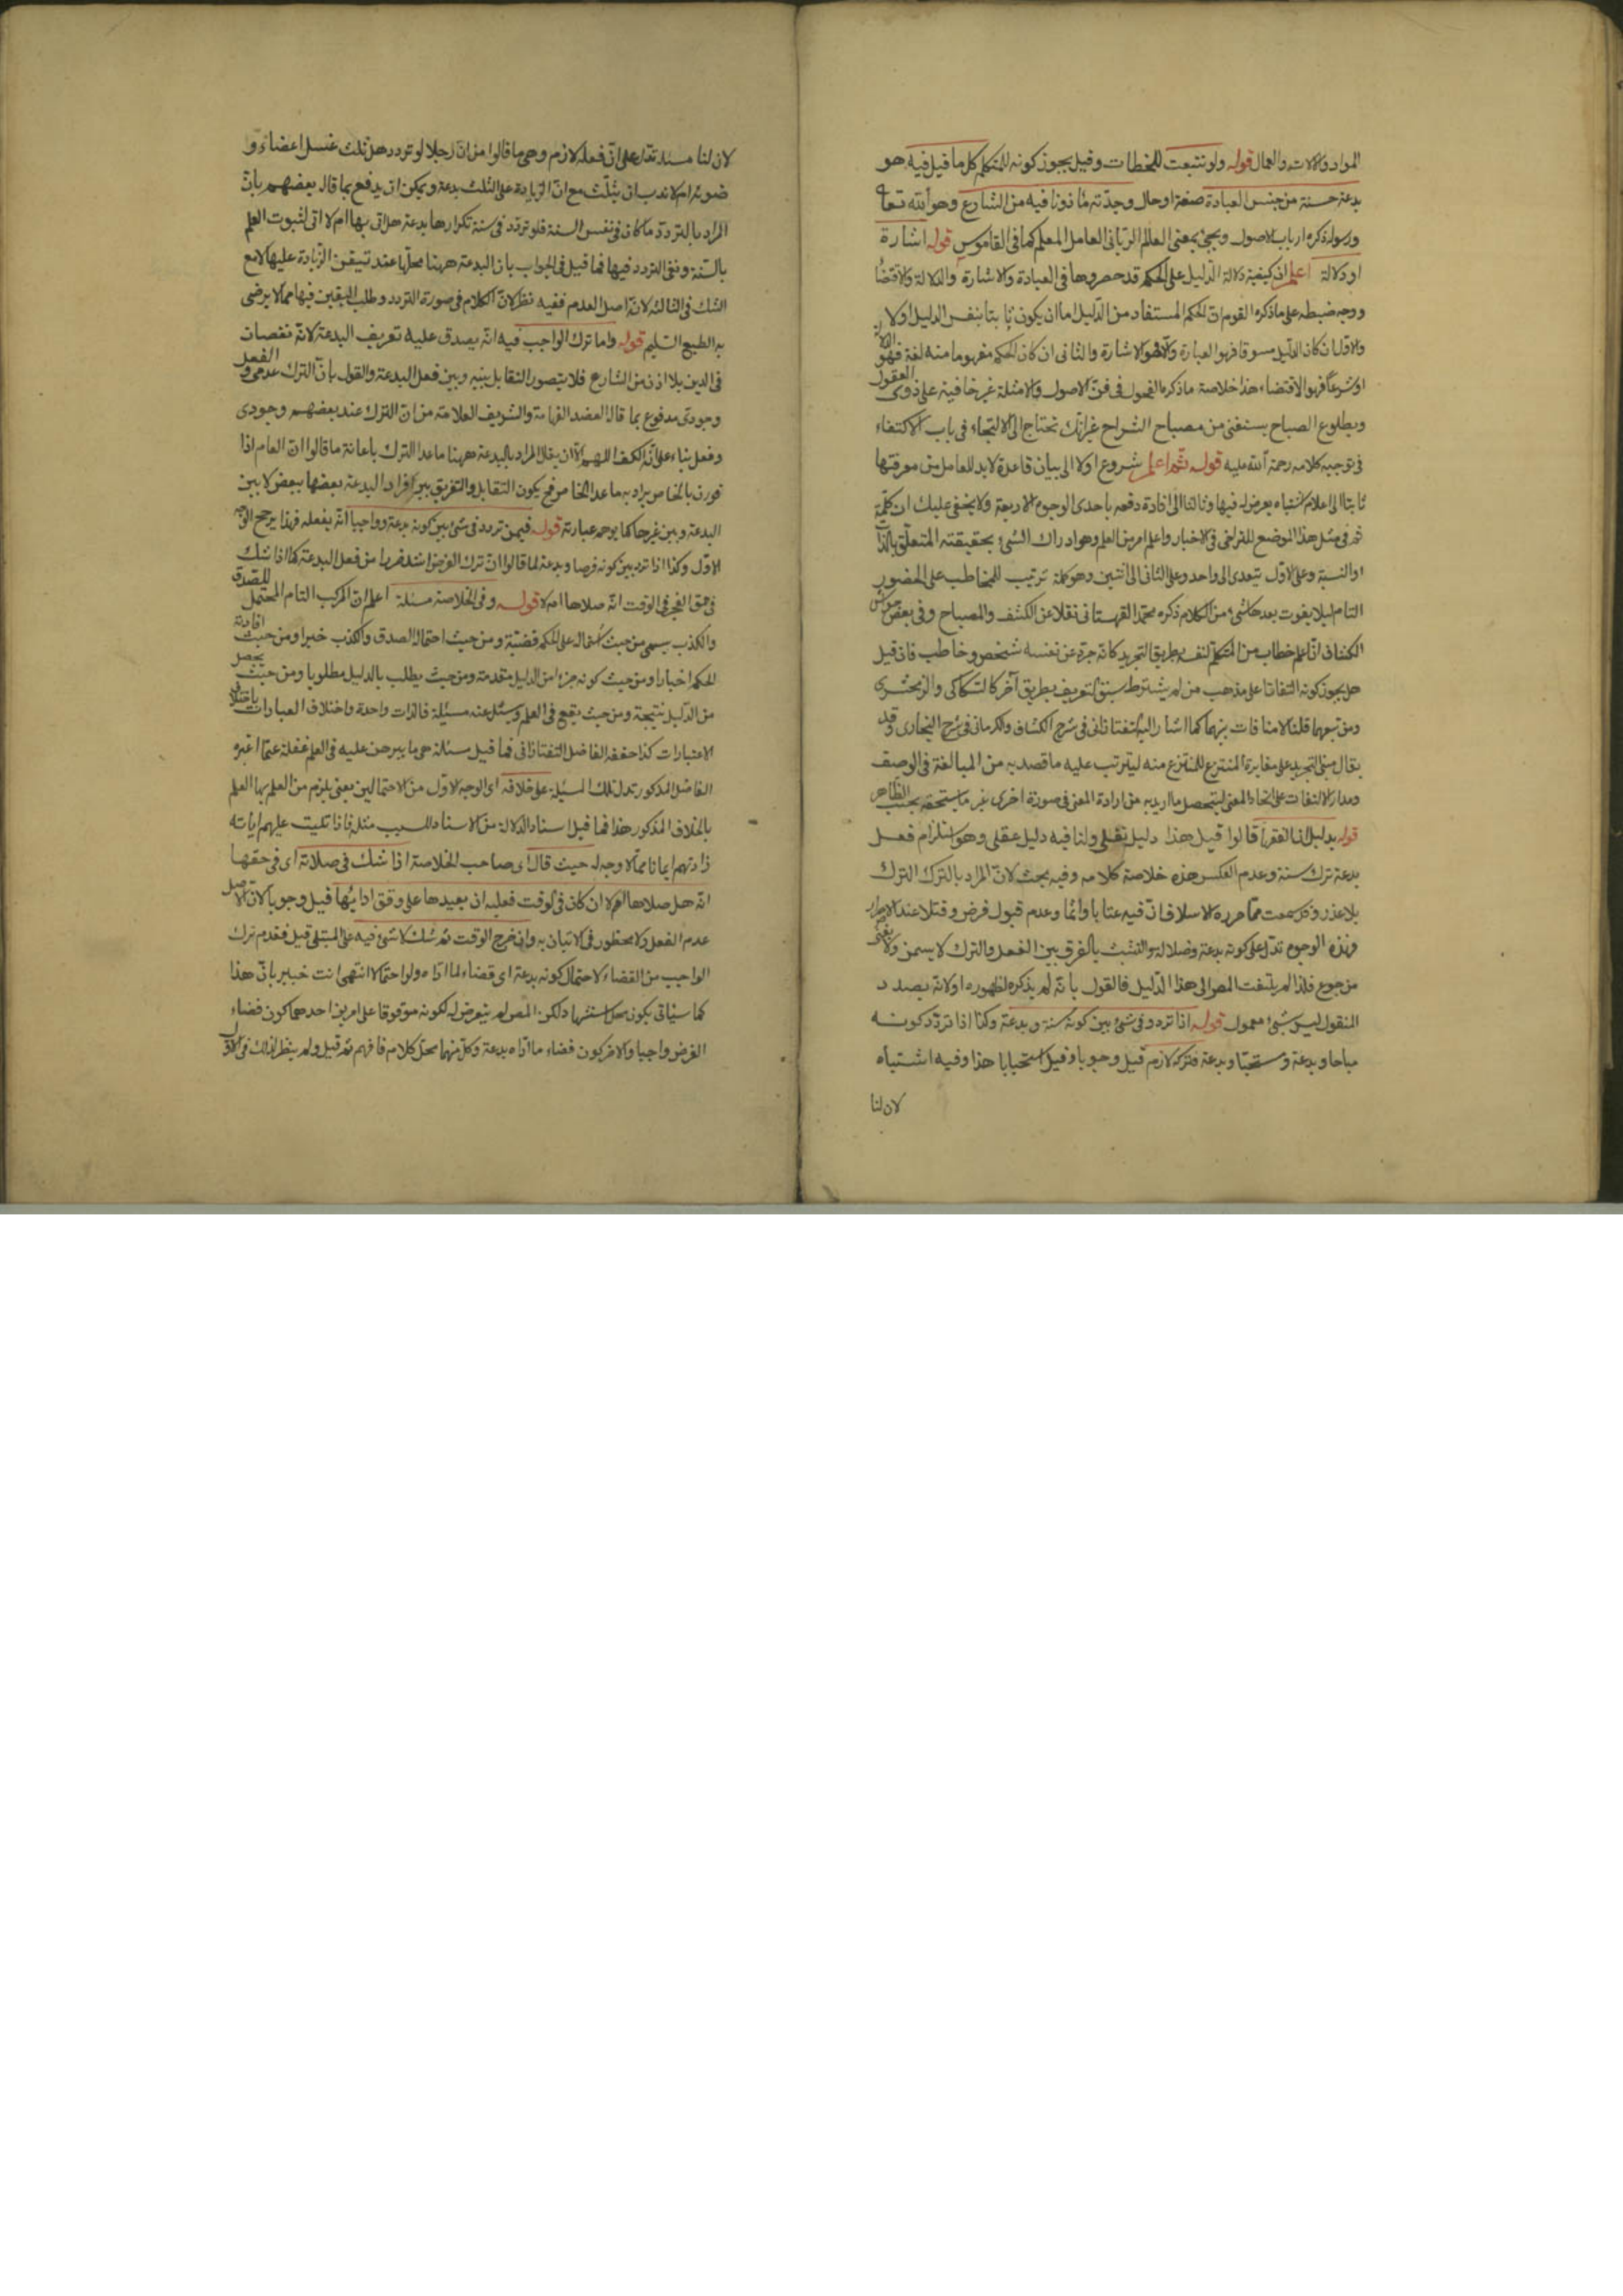 المواد والآلات والعمال قوله ولو تتبعت للخطات وقيل يجوز كونه للمتكلم كل ما فيل فيه هو
بدعة حسنة من جنس العبادة صفة او حال وجدته مأذونا فيه من الشارع وهو الله تعا
ورسوله ذكره ارباب الاصول ويجئ بمعنى العالم الربانى العامل المعلم كما فى القاموس قوله اشارة
او دلالة اعلم ان كيفية دلالة الدليل على الحكم قد حصروها فى العبادة والاشارة والدلالة والاقتضا
ووجه ضبطه على ما ذكره القوم ان الحكم المستفاد من الدليل اما ان يكون ثابتا بنفس الدليل اولا
والاول ان كان الدليل مسوقا فهو العبارة والا فهو الاشارة والثانى ان كان الحكم مفهوما منه لغة فهو الدلالة
او شرعا فهو الاقتضاء هذا خلاصة ما ذكره الفحول فى فن الاصول والامثلة غير خافية على ذوى العقول
وبطلوع الصباح يستغنى من مصباح الشراح غير انك تحتاج الى الالتجاء فى باب الاكتفاء
فى توجيه كلامه رحمة الله عليه قوله ثم اعلم شروع اولا الى بيان قاعدة لا بد للعامل من معرفتها
ثانيا الى اعلام اشتباه يعرض له فيها وثالثا الى افادة دفعه باحدى الوجوه الاربعة ولا يخفى عليك ان كلمة
ثم فى مثل هذا الموضع للتراخى فى الاخبار واعلم امر من العلم وهو ادراك الشئ بحقيقته المتعلق بالذات
او النسبة وعلى الاول يتعدى الى واحد وعلى الثانى الى اثنين وهو كلمة ترتيب للمخاطب على الحضور
التام لئلا يفوت بعدها شئ من الكلام ذكره محمد القهستانى نقلا عن الكشف والمصباح وفى بعض حواشى
الكشاف ان اعلم خطاب من المتكلم لنفسه بطريق التجريد كانه جرد عن نفسه شخص وخاطب فان قيل
هل يجوز كونه التفاتا على مذهب من لم يشترط سبق التعريف بطريق آخر كالسكاكى والزمخشرى
ومن تبعهما قلنا لا منافات بينهما كما اشار اليه التفتازانى فى شرح الكشاف والكرمانى فى شرح البخارى وقد
يقال مبنى التجريد على مغايرة المنتزع للمنتزع منه ليترتب عليه ما قصد به من المبالغة فى الوصف
ومدار الالتفات على اتحاد المعنى ليتحصل ما اريد به من ارادة المعنى فى صورة اخرى غير ما يستحقه بحسب الظاهر
قوله بدليل ان الفقهاء قالوا قيل هذا دليل نقلى ولنا فيه دليل عقلى وهو استلزام فعل
بدعة ترك سنة وعدم العكس هذه خلاصة كلامه وفيه بحث لان المراد بالترك الترك
بلا عذر وقد سمعت مما حرره الاسلاف ان فيه عتابا واثما وعدم قبول فرض وقتلا عند الاصرار
وهذه الوجوه تدل على كونه بدعة وضلالة والتشبث بالفرق بين الفعل والترك لا يسمن ولا يغنى
من جوع فلذا لم يلتفت المص الى هذا الدليل فالقول بانه لم يذكره لظهوره او لانه بصدد
المنقول ليس بشئ معمول قوله اذا تردد فى شئ بين كونه سنة وبدعة وكذا اذا تردد كونه
مباحا وبدعة ومستحبا وبدعة فتركه لازم قيل وجوبا وقيل استحبابا هذا وفيه اشتباه
لان لنا
لان لنا مسئلة تدل على ان فعله لازم وهى ما قالوا من ان رجلا لو تردد هل ثلث غسل اعضاء و
ضوئه ام لا ندب ان يثلث مع ان الزيادة على الثلث بدعة ويمكن ان يدفع بما قال بعضهم بان
المراد بالتردد ما كان فى نفس السنة فلو تردد فى سنة تكرارها بدعة هل اتى بها ام لا اتى لثبوت العلم
بالسنة ونفى التردد فيها فما قيل فى الجواب بان البدعة ههنا محلها عند تيقن الزيادة عليها لا مع
الشك فى الثالثة لان اصل العدم ففيه نظر لان الكلام فى صورة التردد وطلب اليقين فيها مما لا يرضى
به الطبع السليم قوله واما ترك الواجب فيه انه يصدق عليه تعريف البدعة لانه نقصان
فى الدين بلا اذن من الشارع فلا يتصور التقابل بينه وبين فعل البدعة والقول بان الترك عدمى و الفعل
وجودى مدفوع بما قال العضد الفهامة والشريف العلامة من ان الترك عند بعضهم وجودى
وفعل بناء على انه الكف اللهم الا ان يقال المراد بالبدعة ههنا ما عدا الترك باعانة ما قالوا ان العام اذا
قورن بالخاص يراد به ما عدا الخاص فح يكون التقابل والتفريق بين افراد البدعة بعضها ببعض لا بين
البدعة وبين غيرها كما يوهم عبارته قوله فيمن تردد فى شئ بين كونه بدعة وواجبا انه يفعله فهذا يرجح الوجه
الاول وكذا اذا تردد بين كونه فرضا وبدعة لما قالوا ان ترك الفرض اشد ضررا من فعل البدعة كما اذا شك
فى حق الفجر فى الوقت انه صلاها ام لا قوله وفى الخلاصة مسئلة اعلم ان المركب التام المحتمل للصدق
والكذب يسمى من حيث اشتماله على الحكم قضية ومن حيث احتماله الصدق والكذب خبرا ومن حيث افادة
الحكم اخبارا ومن حيث كونه جزءا من الدليل مقدمة ومن حيث يطلب بالدليل مطلوبا ومن حيث يحصل
من الدليل نتيجة ومن حيث يقع فى العلم ويسئل عنه مسئلة فالذات واحدة واختلاف العبارات باختلاف
الاعتبارات كذا حققه الفاضل التفتازانى فما قيل مسئلة هى ما يبرهن عليه فى العلم غفلة عما اعتبره
الفاضل المذكور تدل تلك المسئلة على خلافه اى الوجه الاول من الاحتمالين يعنى يلزم من العلم بها العلم
بالخلاف المذكور هذا فما قيل اسناد الدلالة من الاسناد للسبب مثله فاذا تليت عليهم اياته
زادتهم ايمانا مما لا وجه له حيث قال اى صاحب الخلاصة اذا شك فى صلاته اى فى حقها
انه هل صلاها ام لا ان كان فى الوقت فعليه ان يعيدها على وفق ادائها قيل وجوبا لان الاصل
عدم الفعل ولا محظور فى الاتيان به وان خرج الوقت ثم شك لا شئ فيه على المبتلى قيل فقدم ترك
الواجب من القضاء لاحتمال كونه بدعة اى قضاء لما اداه ولو احتمالا انتهى انت خبير بان هذا
كما سيأتى يكون محل استشهاد لكن المص لم يتعرض له لكونه موقوفا على امرين احدهما كون قضاء
الفرض واجبا والاخر كون قضاء ما اداه بدعة وكل منهما محل كلام فافهم ثم قيل ولم ينظر لذلك فى الاول